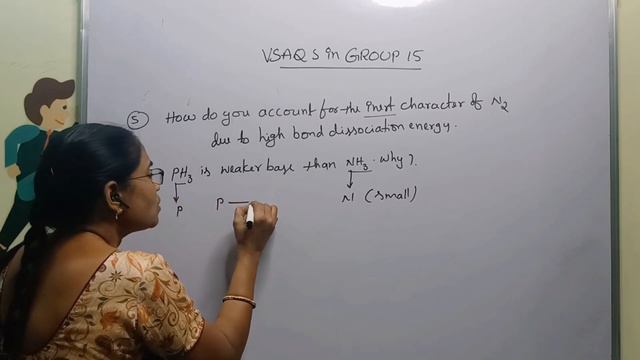 VSAQS in GROUP 15
5 How do you account for the inert character of N2
due to high bond dissociation energy.
PH3 is weaker base than NH3. Why?.
P P — N (small)